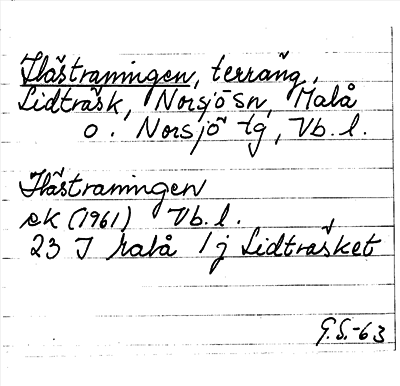 Hästraningen, terräng,
Lidträsk, Norsjö sn, Malå
o. Norsjö tg, Vb. l.
Hästraningen
ek (1961) Vb. l.
23 J Malå 1 j Lidträsket
G.S.-63